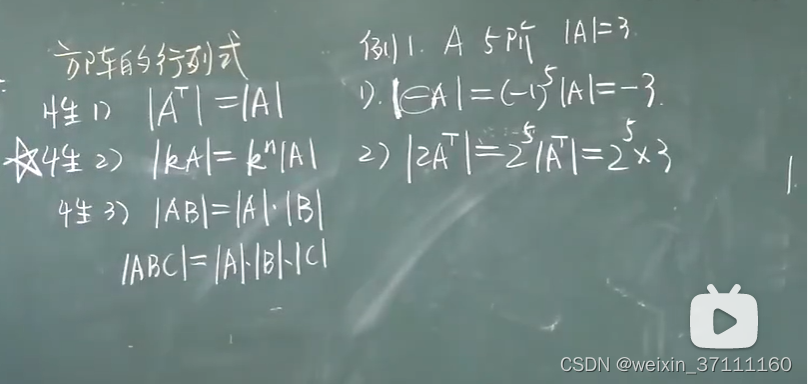 方阵的行列式
性1) |Aᵀ|=|A|
☆性2) |kA|=kⁿ|A|
性3) |AB|=|A|·|B|
|ABC|=|A|·|B|·|C|
例1. A 5阶 |A|=3.
1). |-A|=(-1)⁵|A|=-3.
2) |2Aᵀ|=2⁵|Aᵀ|=2⁵×3
CSDN @weixin_37111160